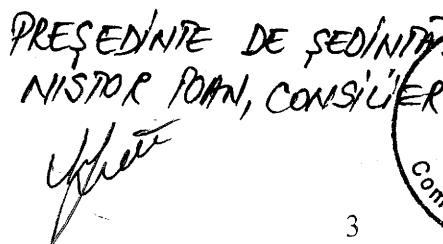 PREȘEDINTE DE ȘEDINȚĂ
NISTOR IOAN, CONSILIER
Com
3